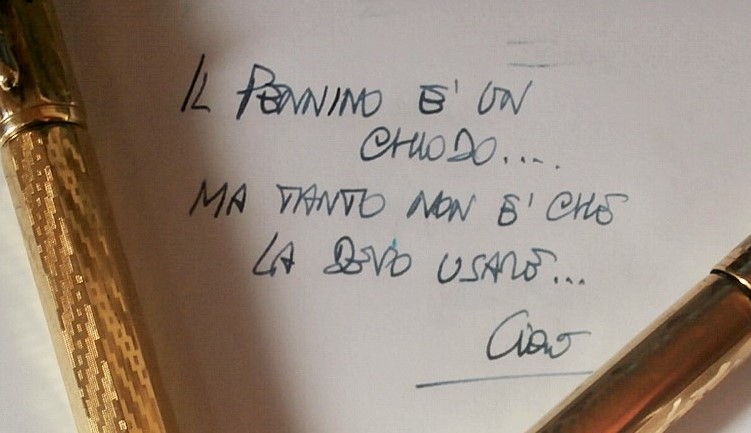 IL PENNINO E' UN
CHIODO....
MA TANTO NON E' CHE
LA DEVO USARE...
Ciao